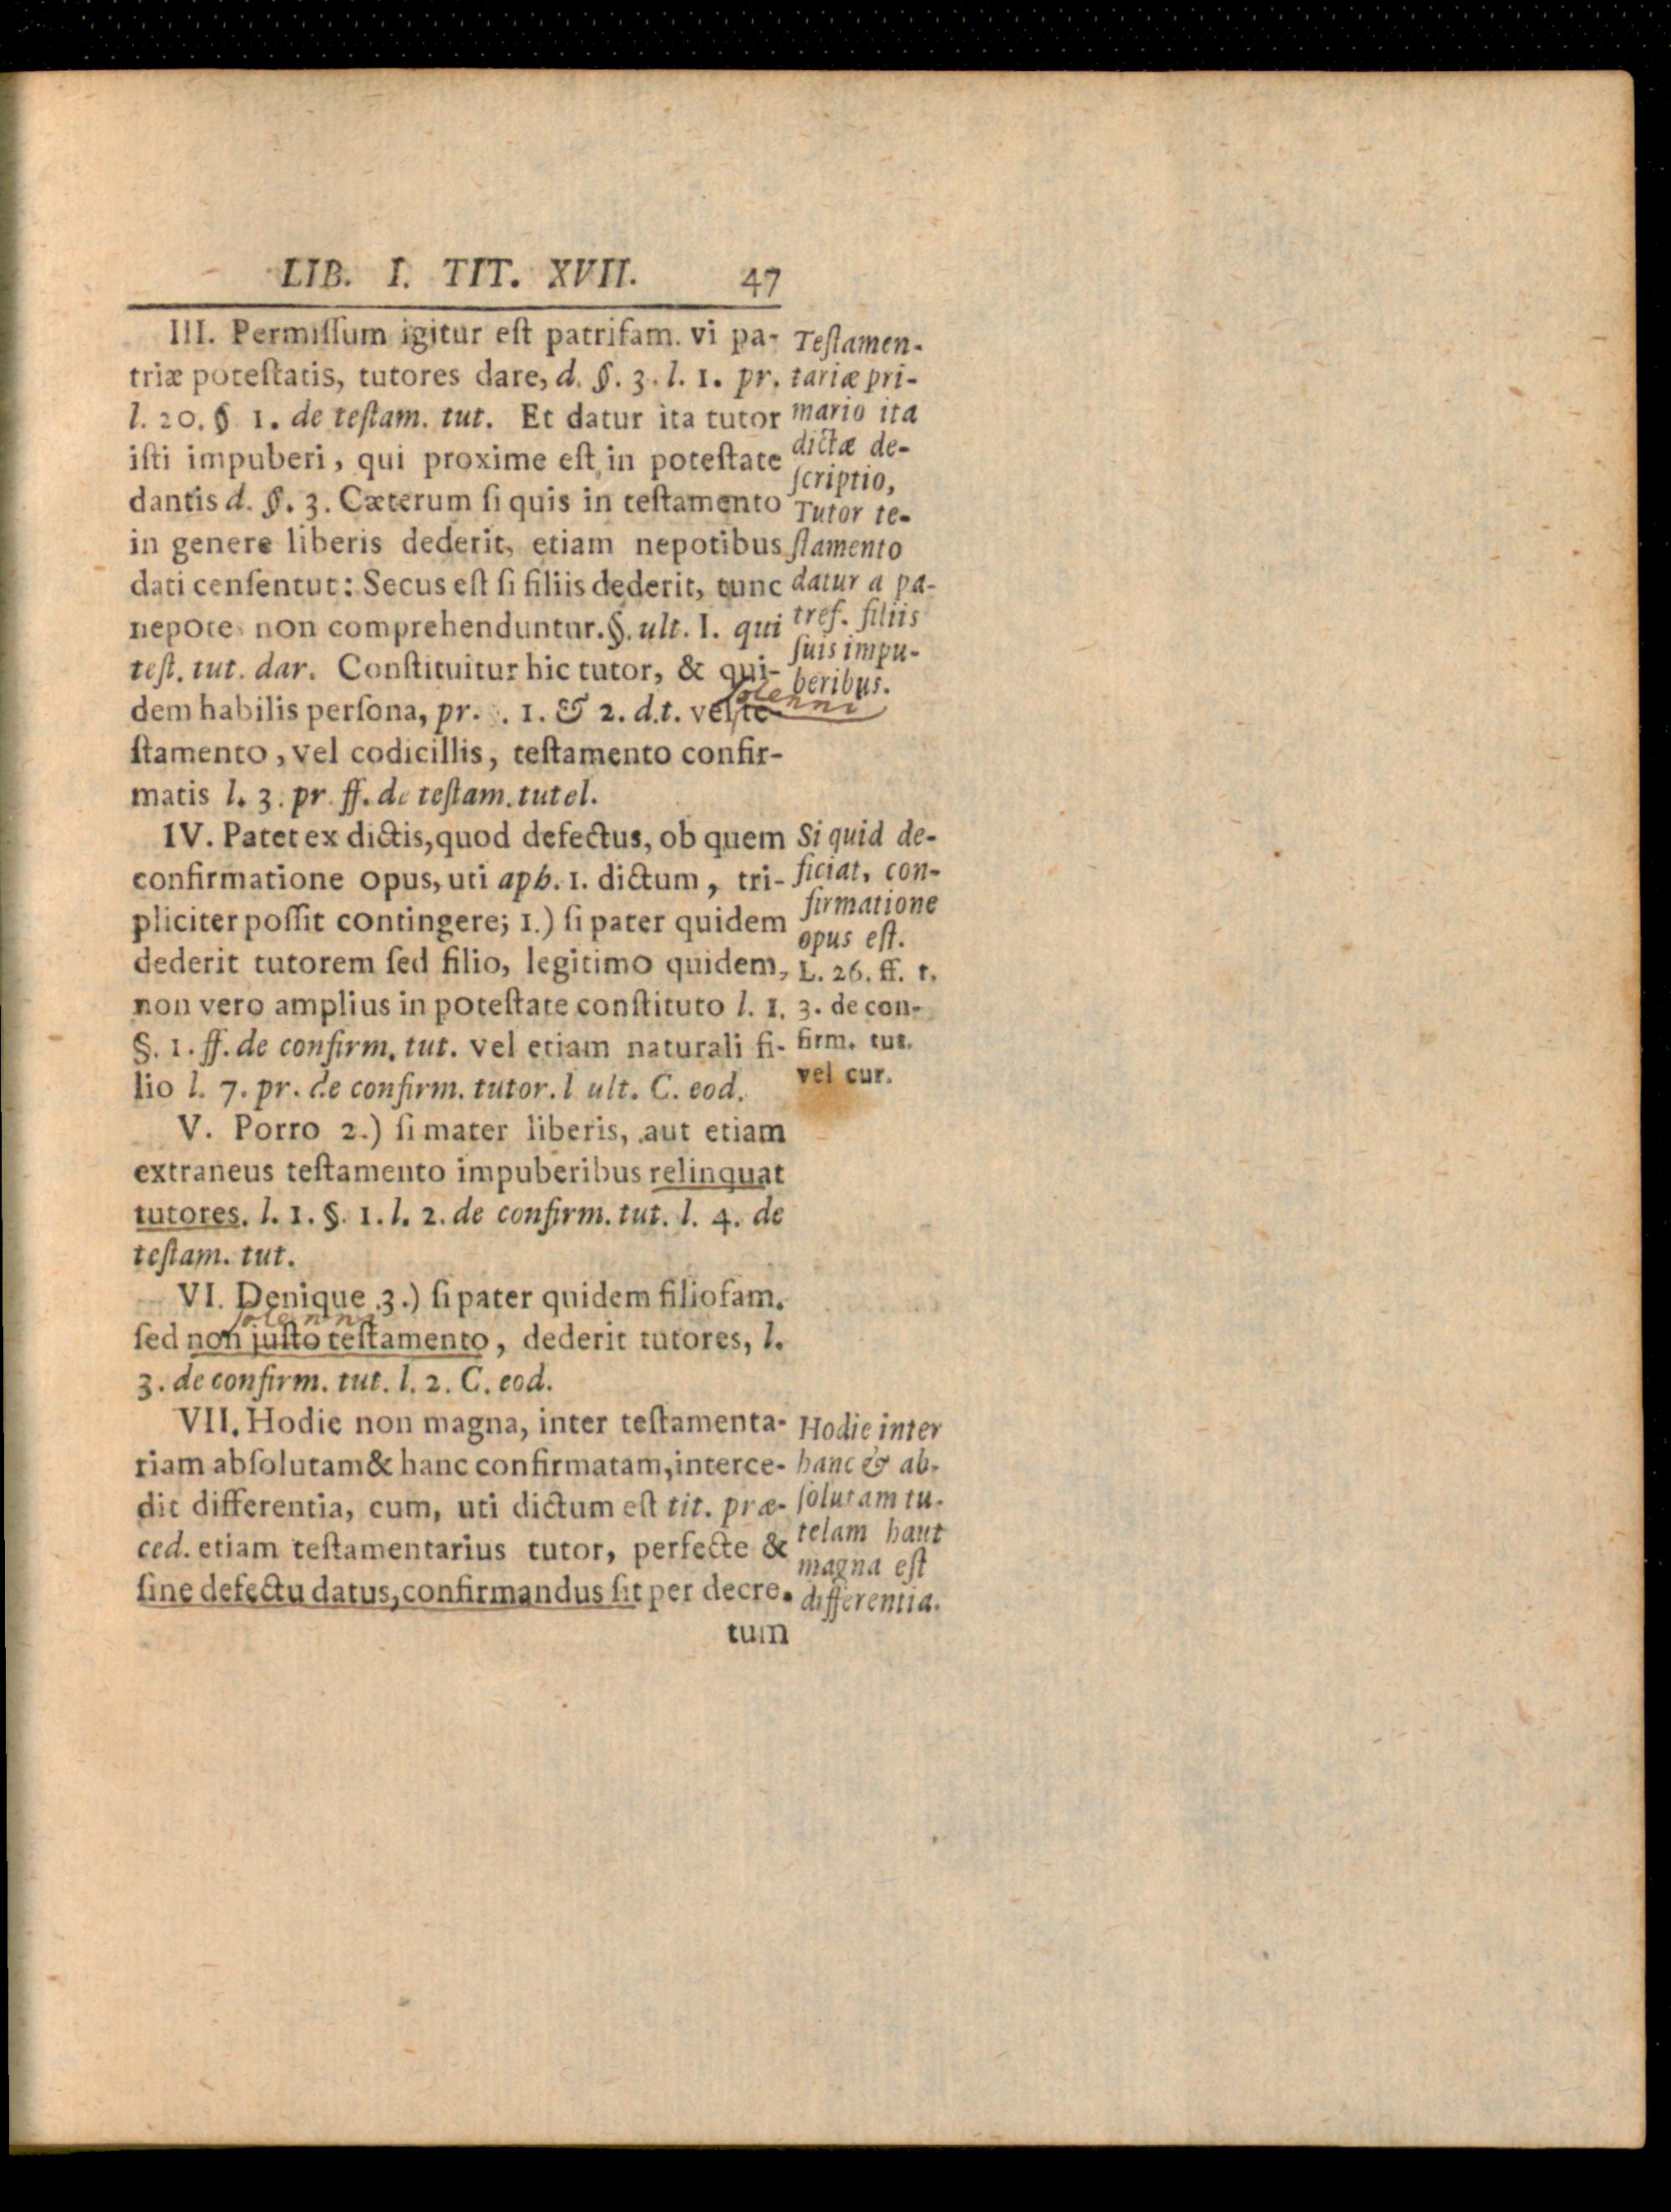 LIB. I. TIT. XVII. 47
III. Permiſſum igitur eſt patrifam. vi pa-
triæ poteſtatis, tutores dare, d. §. 3. l. 1. pr.
l. 20. § 1. de teſtam. tut. Et datur ita tutor
iſti impuberi, qui proxime eſt in poteſtate
dantis d. §. 3. Cæterum ſi quis in teſtamento
in genere liberis dederit, etiam nepotibus
dati cenſentut: Secus eſt ſi filiis dederit, tunc
nepote non comprehenduntur. §. ult. I. qui
teſt. tut. dar. Conſtituitur hic tutor, & qui-
solenni
dem habilis perſona, pr. . 1. & 2. d.t. vel te-
ſtamento, vel codicillis, teſtamento confir-
matis l. 3. pr. ff. de teſtam. tutel.
Teſtamen-
tariæ pri-
mario ita
dictæ de-
ſcriptio,
Tutor te-
ſtamento
datur a pa-
tref. filiis
ſuis impu-
beribus.
IV. Patet ex dictis, quod defectus, ob quem
confirmatione opus, uti aph. 1. dictum, tri-
pliciter poſſit contingere; 1.) ſi pater quidem
dederit tutorem ſed filio, legitimo quidem,
non vero amplius in poteſtate conſtituto l. 1.
§. 1. ff. de confirm. tut. vel etiam naturali fi-
lio l. 7. pr. de confirm. tutor. l ult. C. eod.
Si quid de-
ficiat, con-
firmatione
opus eſt.
L. 26. ff. t.
3. de con-
firm. tut.
vel cur.
V. Porro 2.) ſi mater liberis, aut etiam
extraneus teſtamento impuberibus relinquat
tutores. l. 1. §. 1. l. 2. de confirm. tut. l. 4. de
teſtam. tut.
VI. Denique 3.) ſi pater quidem filiofam.
solenni
ſed non juſto teſtamento, dederit tutores, l.
3. de confirm. tut. l. 2. C. eod.
VII. Hodie non magna, inter teſtamenta-
riam abſolutam & hanc confirmatam, interce-
dit differentia, cum, uti dictum eſt tit. præ-
ced. etiam teſtamentarius tutor, perfecte &
ſine defectu datus, confirmandus ſit per decre-
tum
Hodie inter
hanc & ab-
ſolutam tu-
telam haut
magna eſt
differentia.